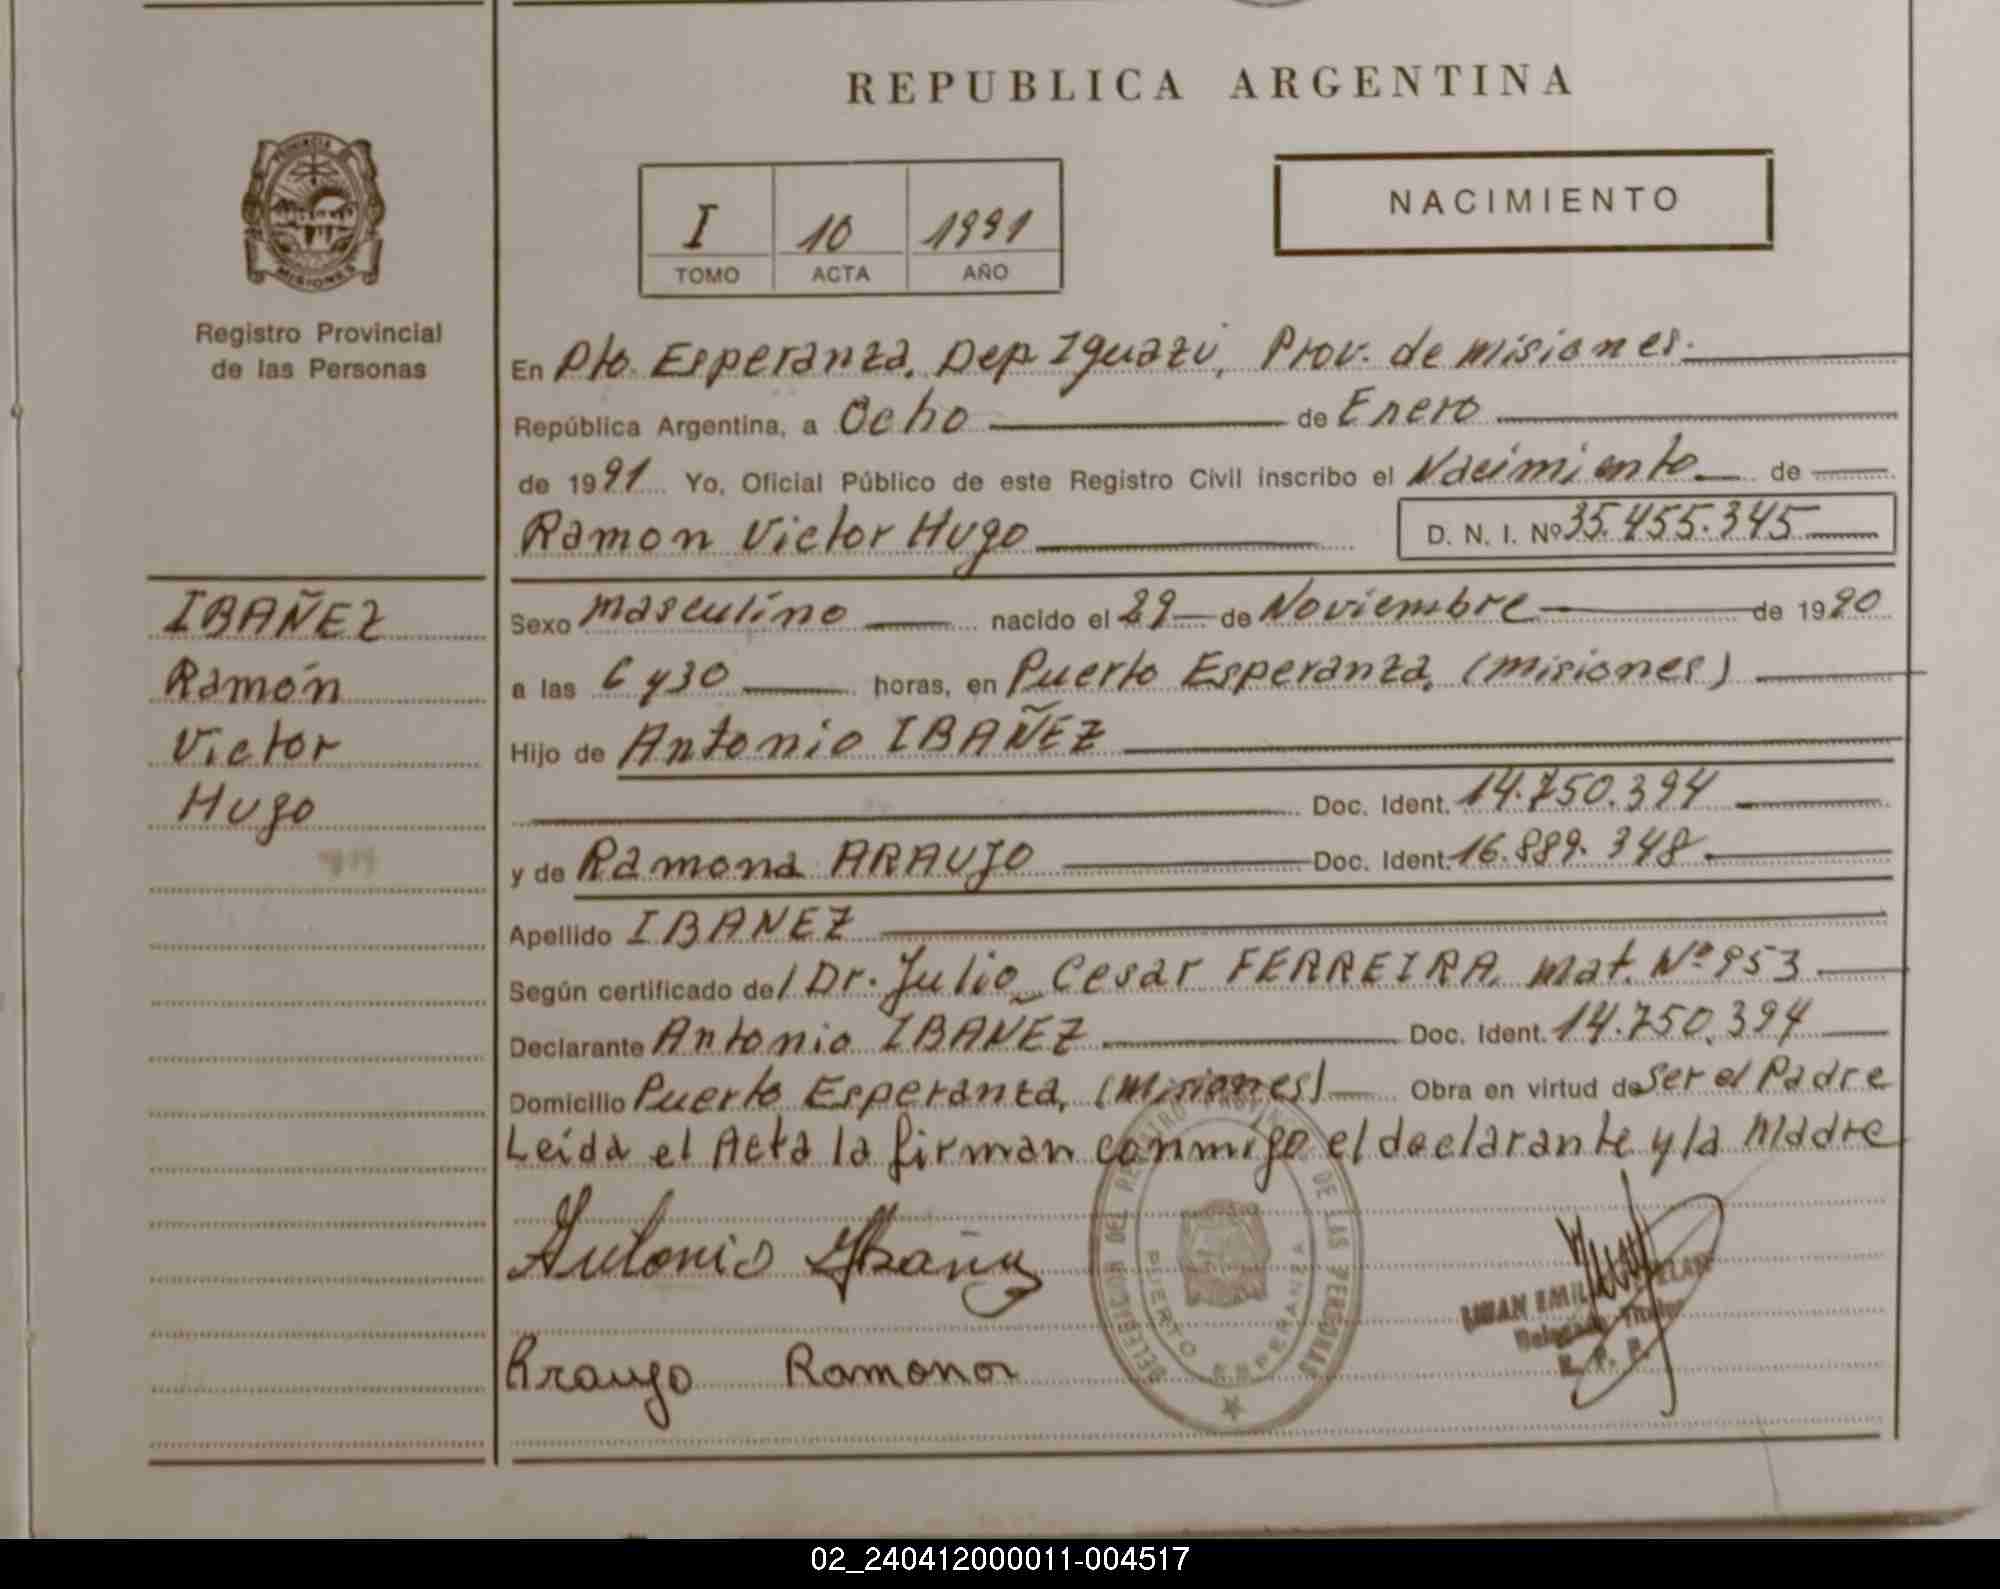 REPUBLICA ARGENTINA
PROVINCIA
MISIONES
Registro Provincial
de las Personas
I 10 1991
TOMO ACTA AÑO
NACIMIENTO
En Pto. Esperanza, Dep Iguazú, Prov. de misiones.
República Argentina, a Ocho de Enero
de 1991 Yo, Oficial Público de este Registro Civil inscribo el Nacimiento de
Ramon Victor Hugo D. N. I. Nº 35.455.345
IBAÑEZ
Ramón
Victor
Hugo
Sexo masculino nacido el 29 de Noviembre de 1990
a las 6 y 30 horas, en Puerto Esperanza, (misiones)
Hijo de Antonio IBAÑEZ
Doc. Ident. 14.750.394
y de Ramona ARAUJO Doc. Ident. 16.889.348
Apellido IBANEZ
Según certificado del Dr. Julio Cesar FERREIRA, mat. Nº 953
Declarante Antonio IBAÑEZ Doc. Ident. 14.750.394
Domicilio Puerto Esperanza, (Misiones) Obra en virtud de ser el Padre
Leída el Acta la firman conmigo el declarante y la Madre
Antonio Ibañez
Araujo Ramona
DELEGACION DEL REGISTRO PROVINCIAL DE LAS PERSONAS
PUERTO ESPERANZA
Delegado Titular
R. P. P.
02_240412000011-004517